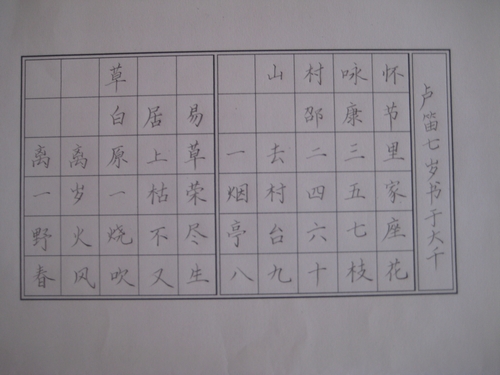 草
白居易
离离原上草
一岁一枯荣
野火烧不尽
春风吹又生
山村咏怀
邵康节
一去二三里
烟村四五家
亭台六七座
八九十枝花
卢笛七岁书于大千